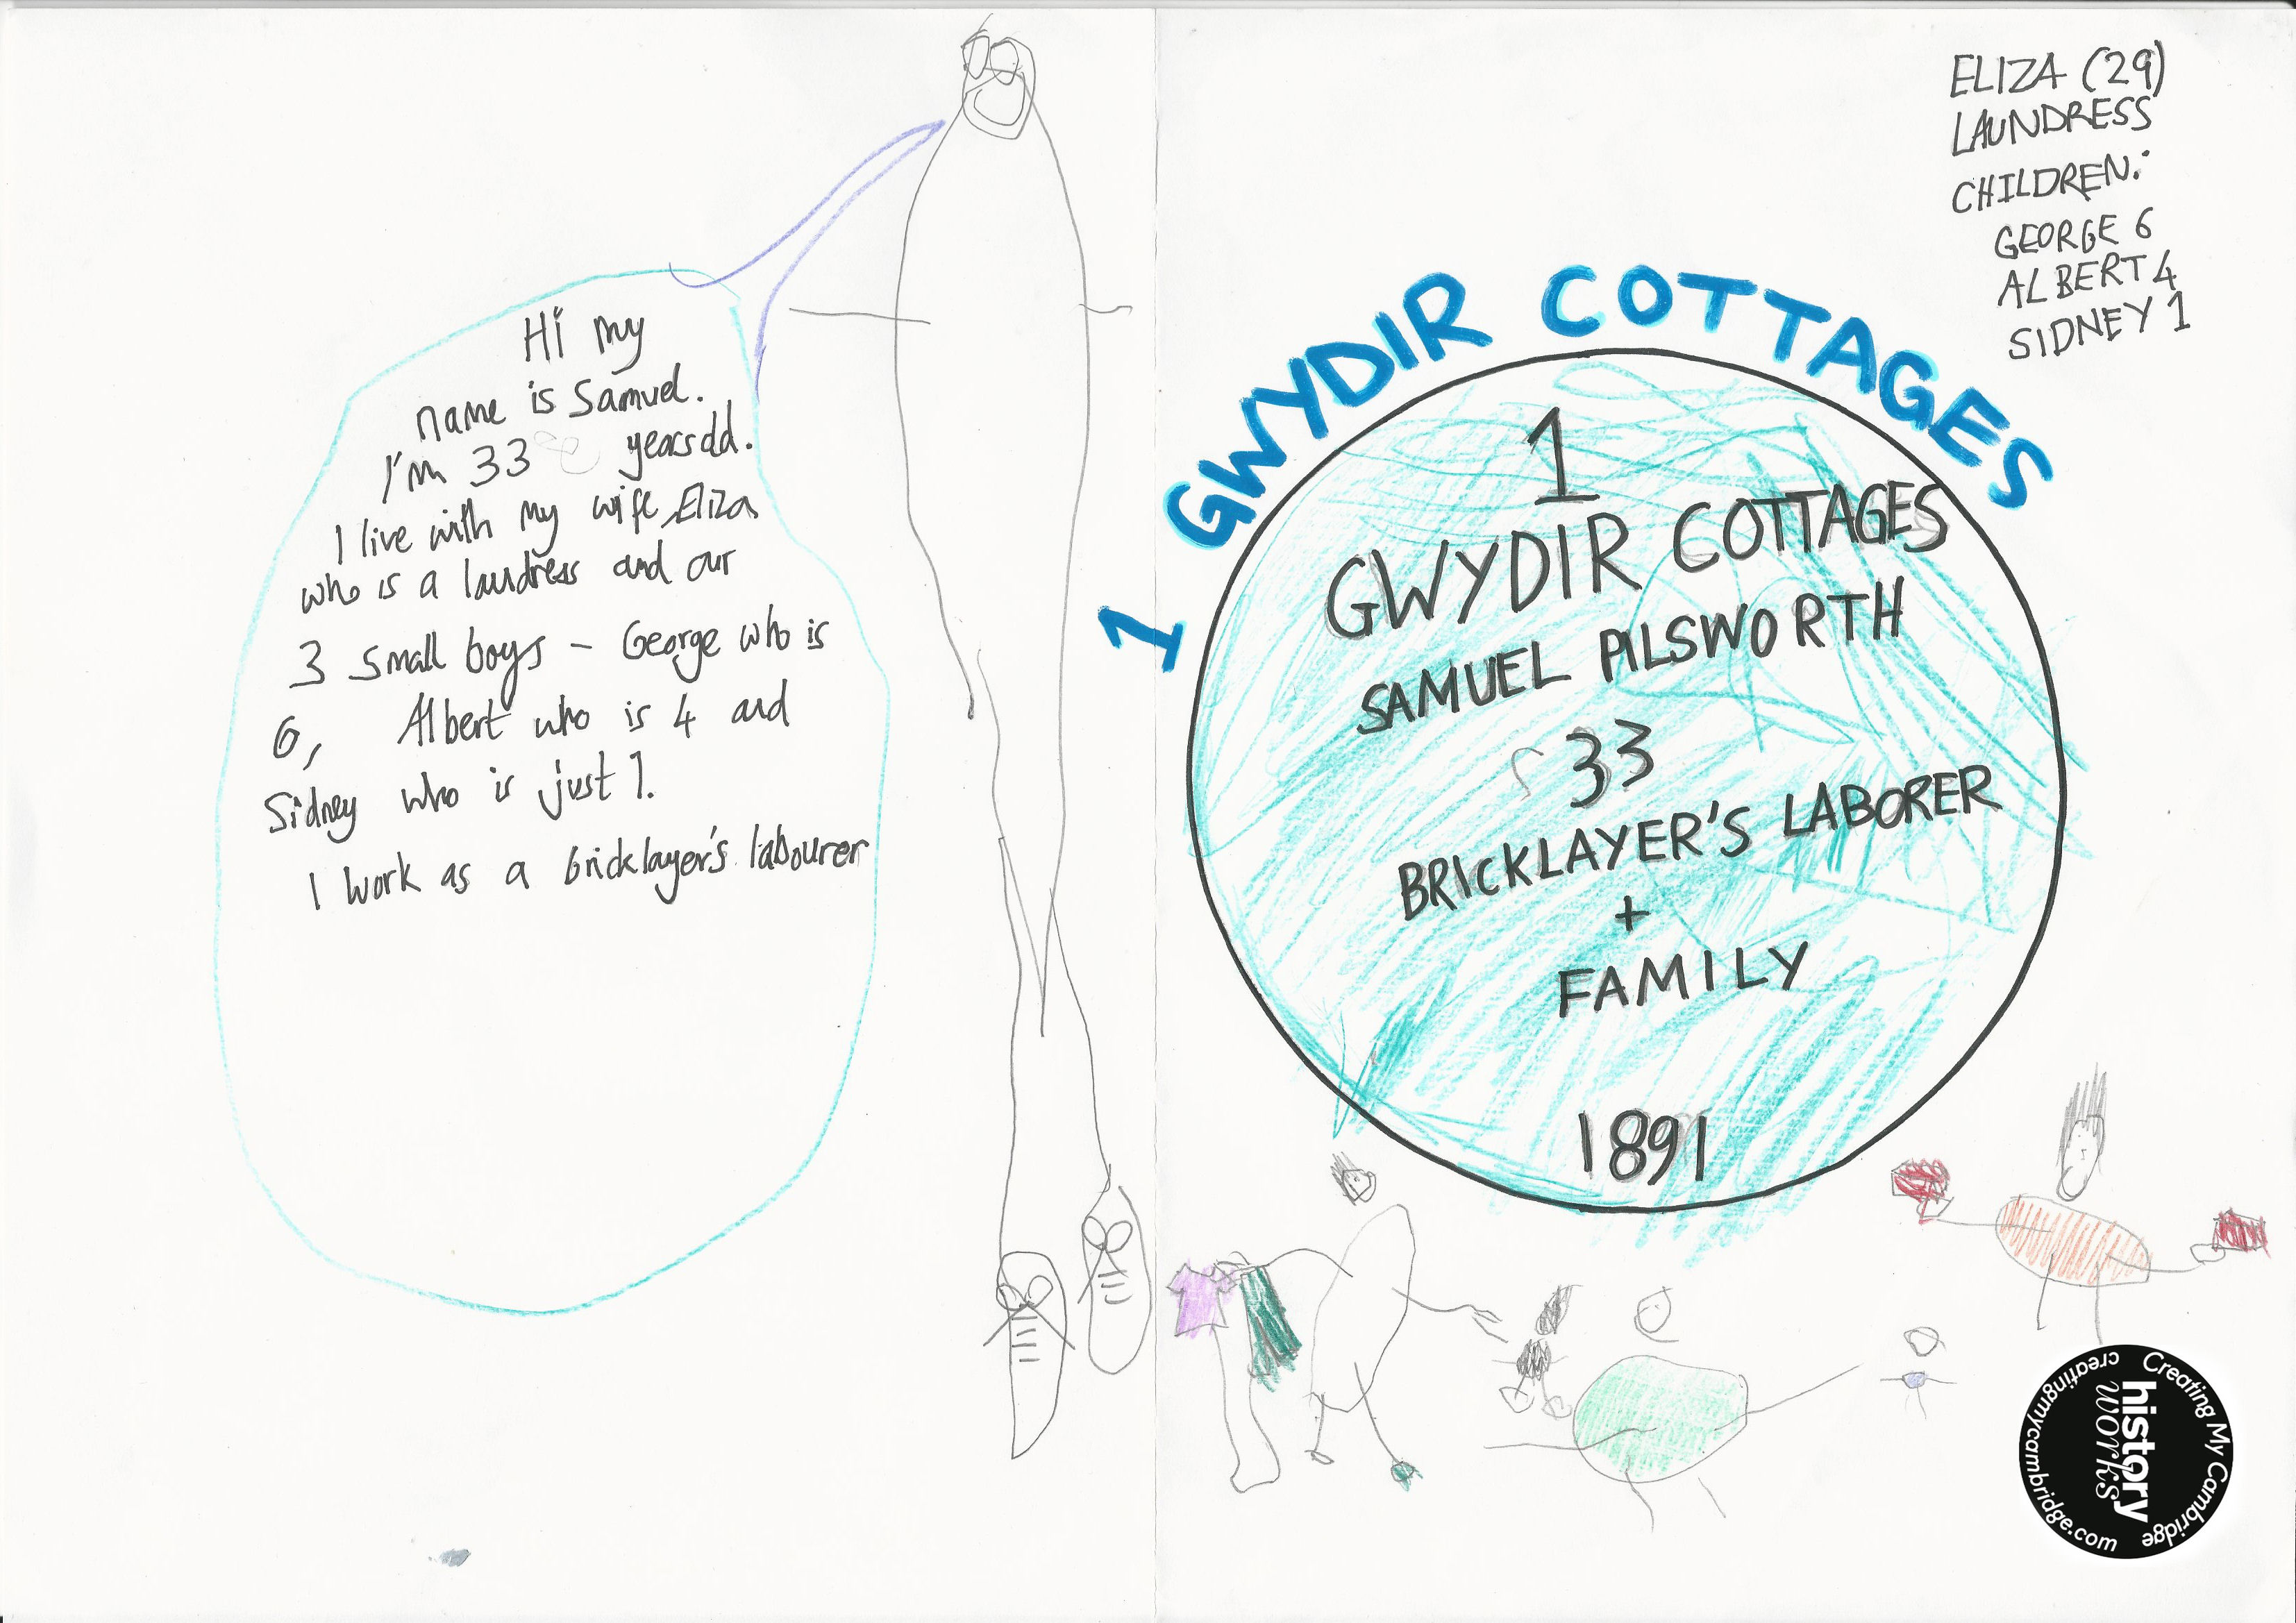 Hi my
name is Samuel.
I'm 33 years old.
I live with my wife, Eliza
who is a laudress and our
3 small boys - George who is
6, Albert who is 4 and
Sidney who is just 1.
I work as a bricklayer's labourer
ELIZA (29)
LAUNDRESS
CHILDREN:
GEORGE 6
ALBERT 4
SIDNEY 1
1 GWYDIR COTTAGES
1
GWYDIR COTTAGES
SAMUEL PILSWORTH
33
BRICKLAYER'S LABORER
+
FAMILY
1891
Creating My Cambridge
history
works
creatingmycambridge.com